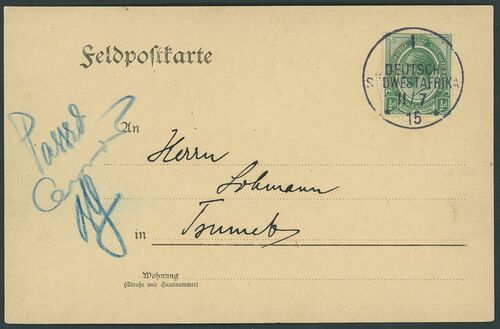 Feldpostkarte
I
DEUTSCH-
SÜDWESTAFRIKA
11/7
* 15 *
½d ½d
Passed
Censor
An
Herrn
Lohmann
in Tsumeb
Wohnung
(Straße und Hausnummer)